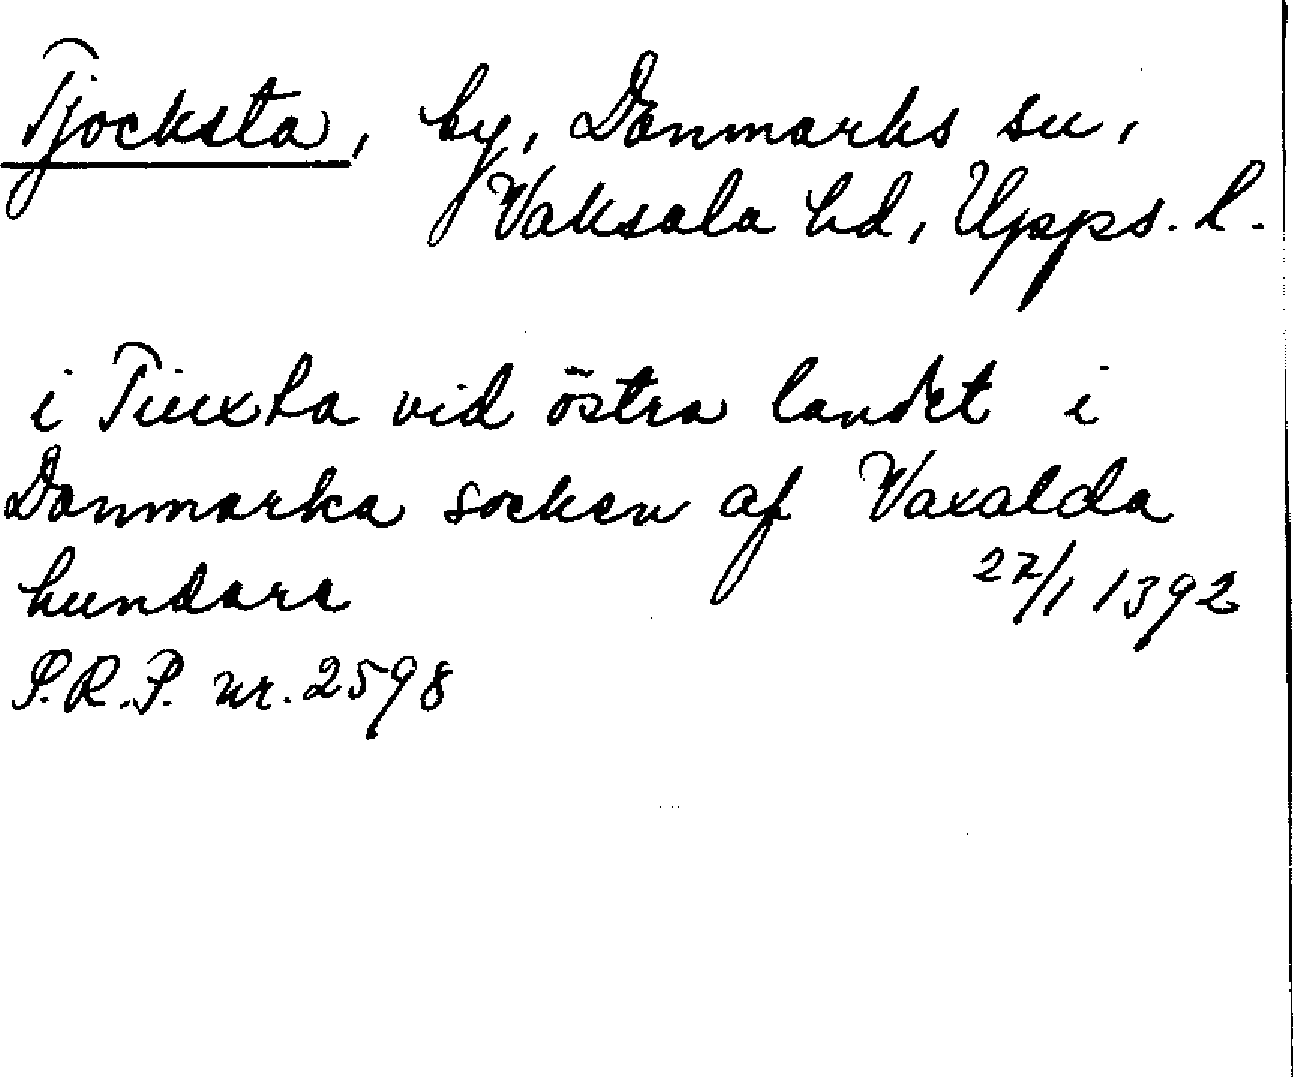 Tjocksta, by, Danmarks sn,
Vaksala hd, Upps. l.
i Tiuxta vid östra landet i
Danmarka socken af Vaxalda
hundara 27/1 1392
S.R.P. nr. 2598